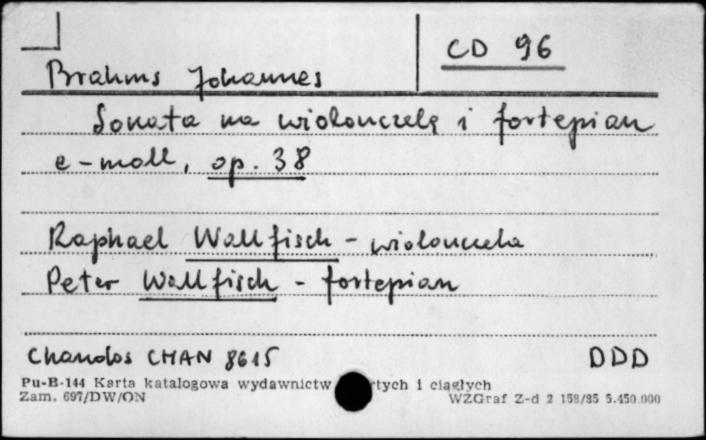 CD 96
Brahms Johannes
Sonata na wiolonczelę i fortepian
e-moll, op. 38
Raphael Wallfisch - wiolonczela
Peter Wallfisch - fortepian
Chandos CHAN 8615 DDD
Pu-B-144 Karta katalogowa wydawnictw rtych i ciągłych
Zam. 697/DW/ON WZGraf Z-d 2 158/85 5.450.000